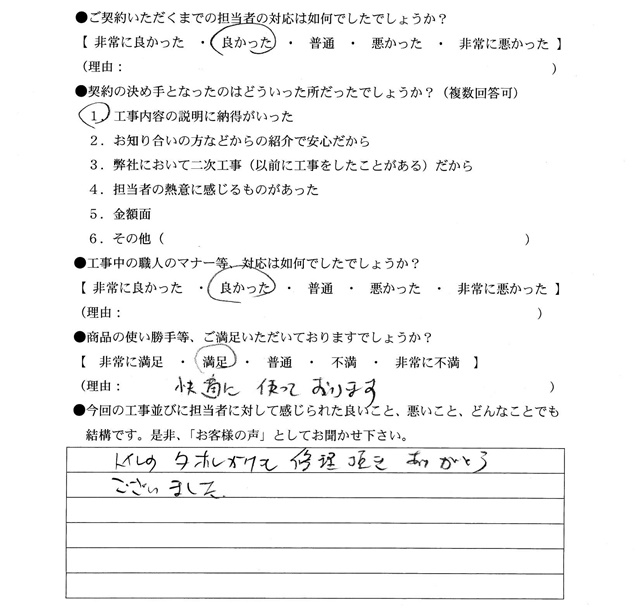 ●ご契約いただくまでの担当者の対応は如何でしたでしょうか？
【 非常に良かった ・ 良かった ・ 普通 ・ 悪かった ・ 非常に悪かった 】
（理由： ）
●契約の決め手となったのはどういった所だったでしょうか？（複数回答可）
１．工事内容の説明に納得がいった
２．お知り合いの方などからの紹介で安心だから
３．弊社において二次工事（以前に工事をしたことがある）だから
４．担当者の熱意に感じるものがあった
５．金額面
６．その他（ ）
●工事中の職人のマナー等、対応は如何でしたでしょうか？
【 非常に良かった ・ 良かった ・ 普通 ・ 悪かった ・ 非常に悪かった 】
（理由： ）
●商品の使い勝手等、ご満足いただいておりますでしょうか？
【 非常に満足 ・ 満足 ・ 普通 ・ 不満 ・ 非常に不満 】
（理由： 快適に 使って おります ）
●今回の工事並びに担当者に対して感じられた良いこと、悪いこと、どんなことでも
結構です。是非、「お客様の声」としてお聞かせ下さい。
トイレの タオルかけも 修理頂き ありがとう
ございました。